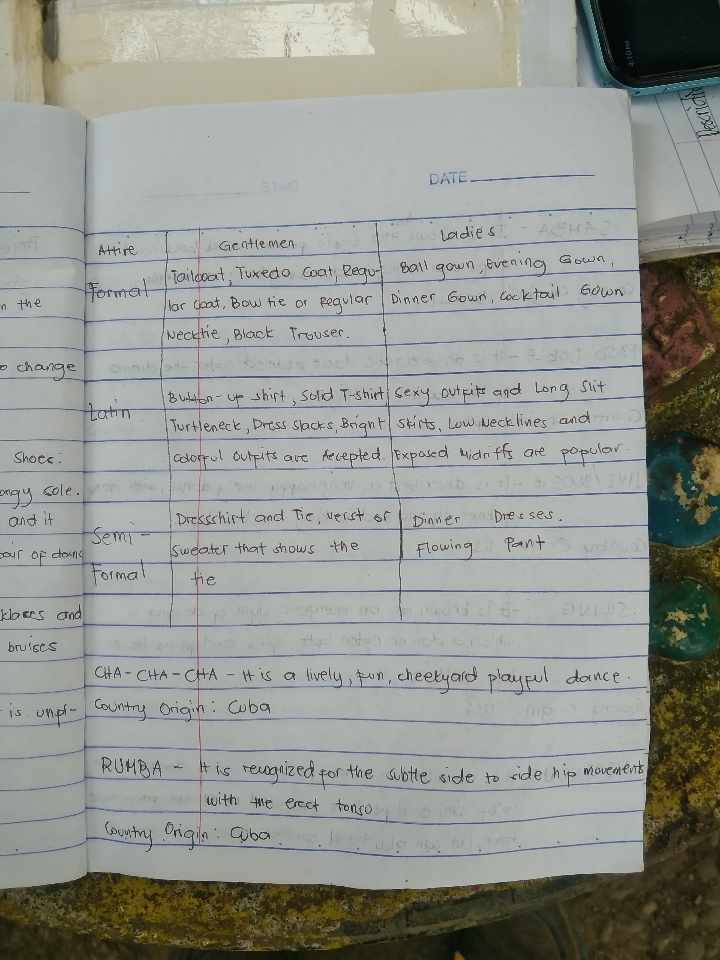 DATE
Attire Gentlemen Ladies
Formal
Tailcoat, Tuxedo Coat, Regu-
lar Coat, Bow tie or Regular
Necktie, Black Trouser.
Ball gown, Evening Gown,
Dinner Gown, Cocktail Gown
Latin
Button-up shirt, Solid T-shirt
Turtleneck, Dress Slacks, Bright
Colorful Outfits are Accepted.
Sexy outfits and Long Slit
Skirts, Low Necklines and
Exposed Midriffs are popular.
Semi-
Formal
Dressshirt and Tie, verst or
Sweater that shows the
tie
Dinner Dresses.
Flowing Pant
CHA-CHA-CHA - It is a lively, fun, cheekyard playful dance.
Country Origin: Cuba
RUMBA - It is recognized for the subtle side to side hip movements
with the erect tonso
Country Origin: Cuba
the
change
Shoes:
sole.
and it
of
and
bruises
is unpl-
4:10 PM